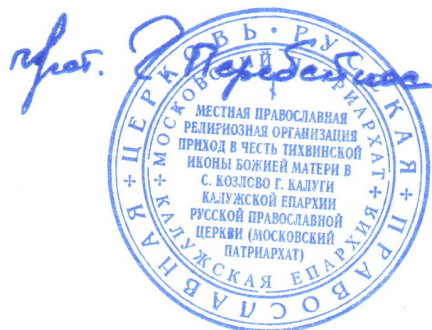 прот.
РУССКАЯ ПРАВОСЛАВНАЯ ЦЕРКОВЬ
МОСКОВСКИЙ ПАТРИАРХАТ
КАЛУЖСКАЯ ЕПАРХИЯ
МЕСТНАЯ ПРАВОСЛАВНАЯ
РЕЛИГИОЗНАЯ ОРГАНИЗАЦИЯ
ПРИХОД В ЧЕСТЬ ТИХВИНСКОЙ
ИКОНЫ БОЖИЕЙ МАТЕРИ В
С. КОЗЛОВО Г. КАЛУГИ
КАЛУЖСКОЙ ЕПАРХИИ
РУССКОЙ ПРАВОСЛАВНОЙ
ЦЕРКВИ (МОСКОВСКИЙ
ПАТРИАРХАТ)